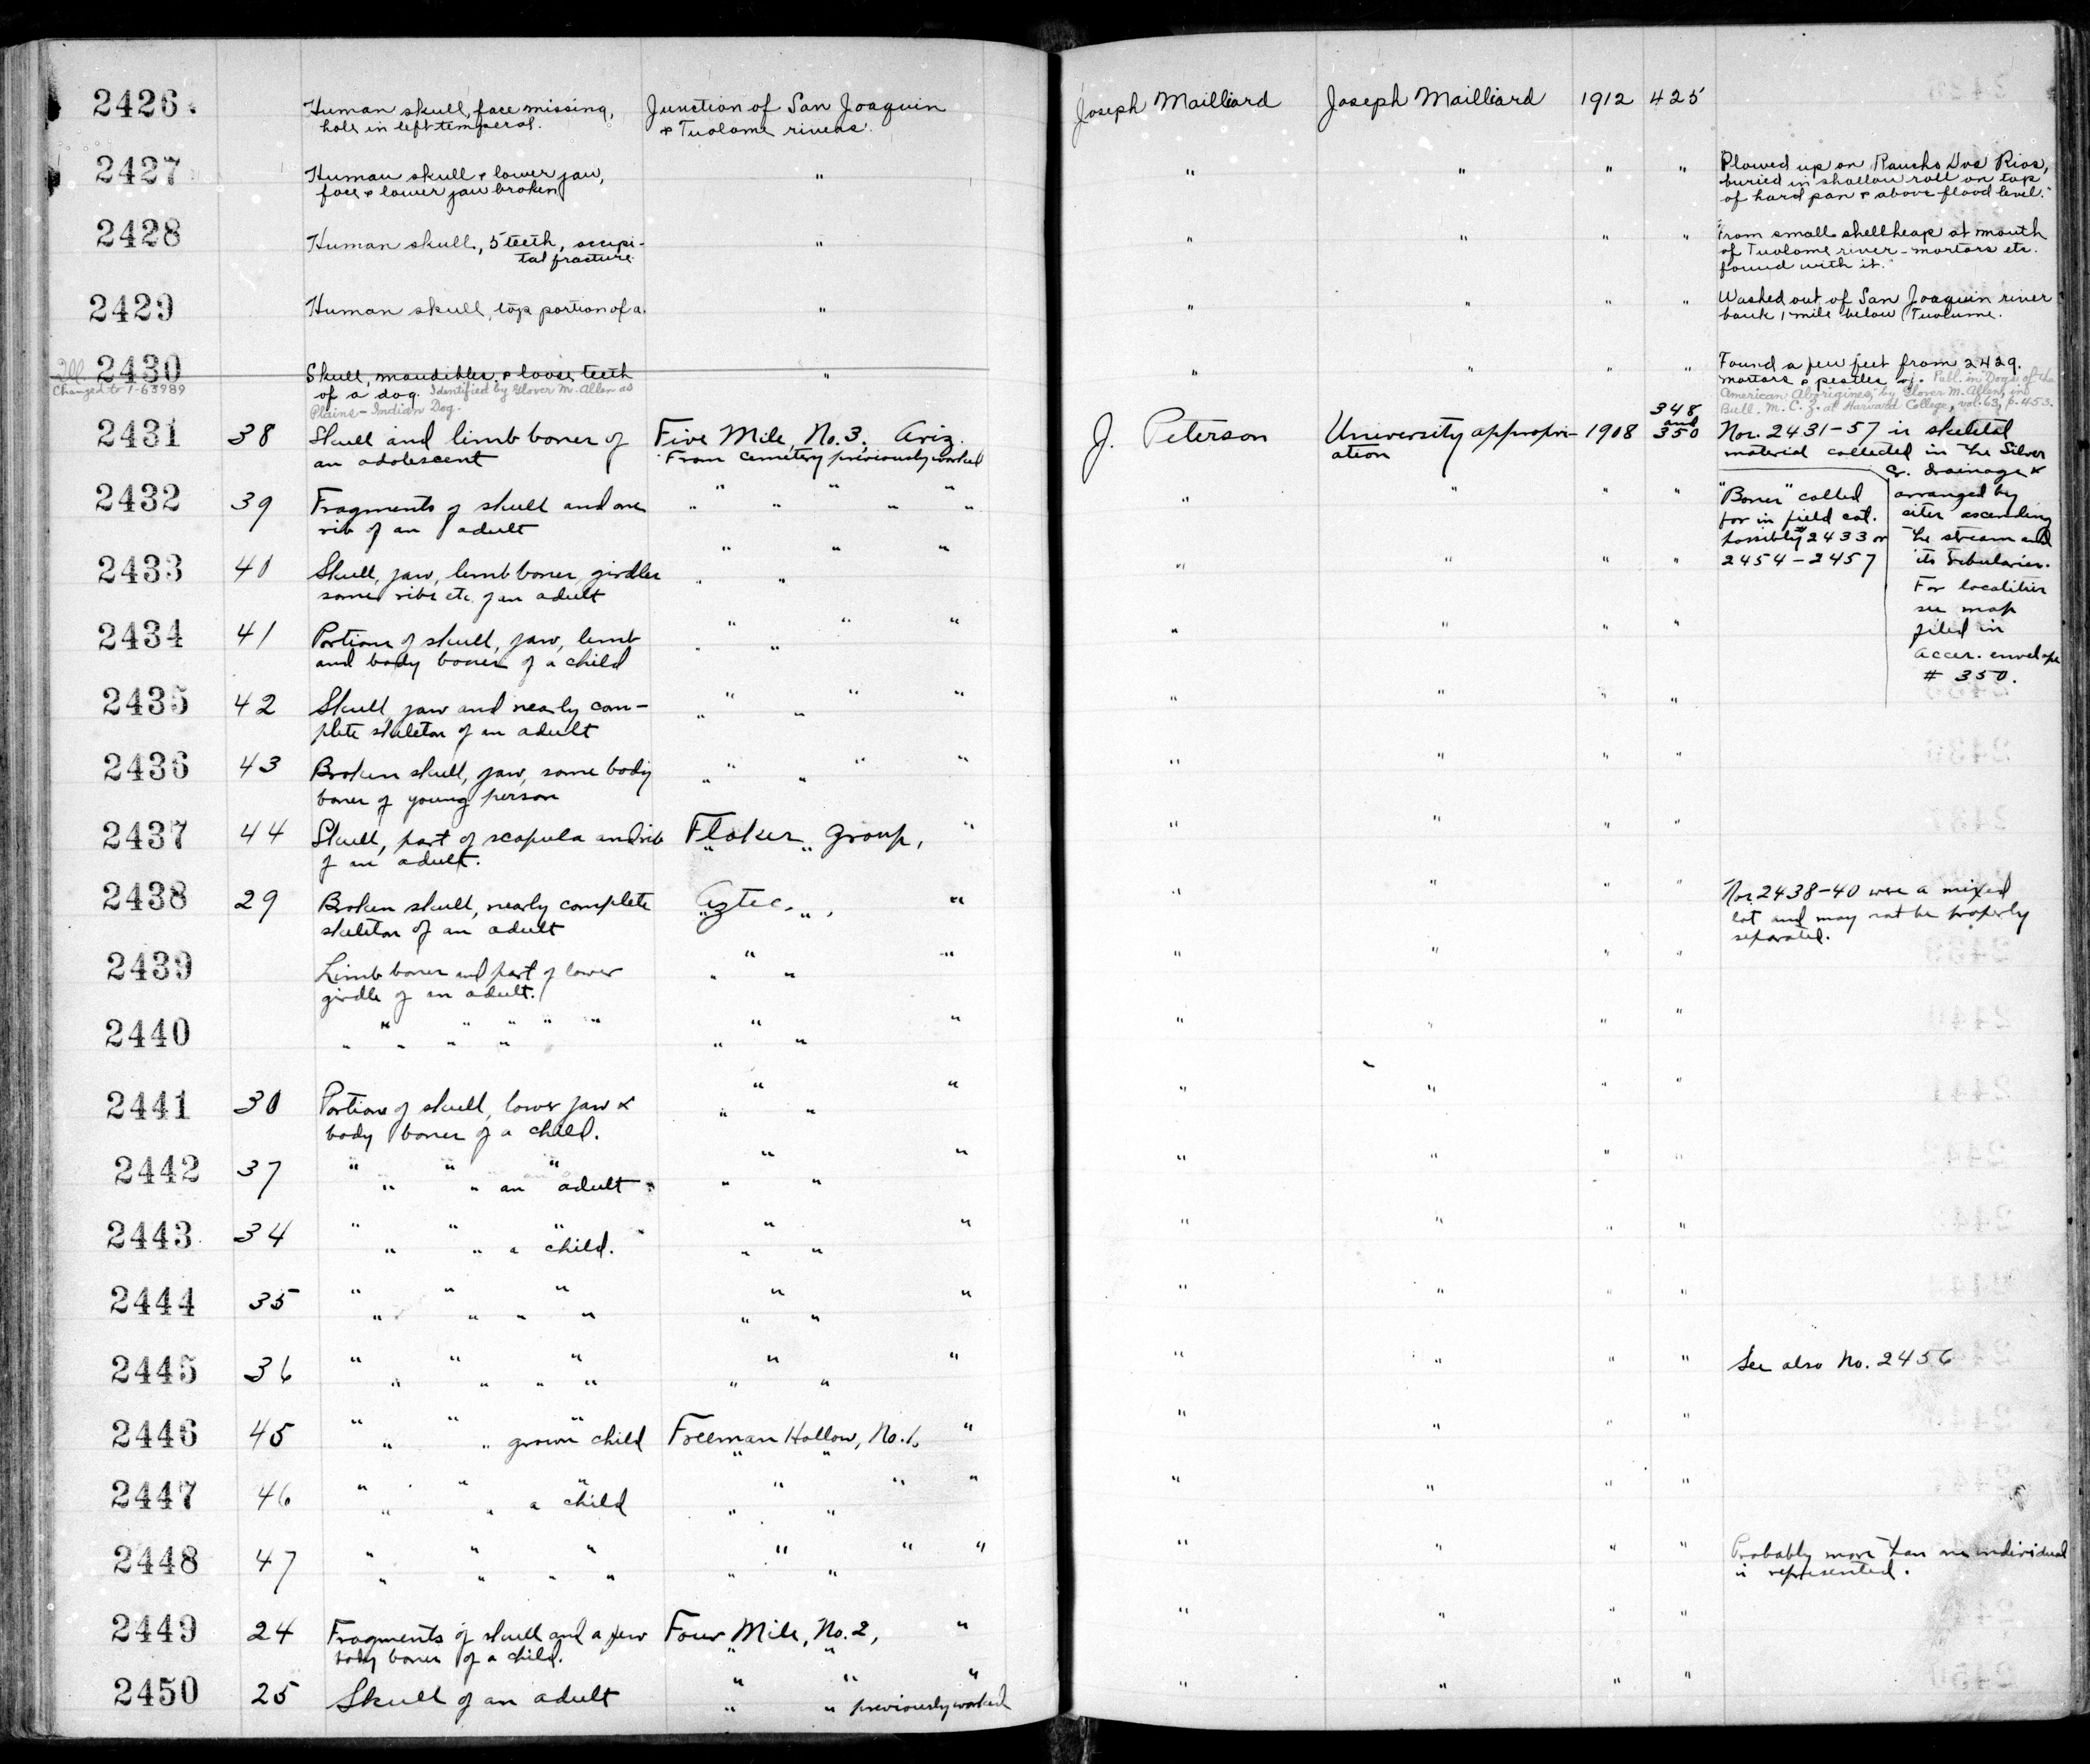 2426. Human skull, face missing, Junction of San Joaquin Joseph Mailliard Joseph Mailliard 1912 425
hole in left temporal. & Tuolome rivers.
2427 Human skull & lower jaw, " " " " " "Plowed up on Rancho Dos Rios,
face & lower jaw broken buried in shallow soil on top
of hard pan & above flood level."
2428 Human skull, 5 teeth, occipi- " " " " " "From small shellheap at mouth
tal fracture. of Tuolome river - mortars etc.
found with it."
2429 Human skull, top portion of a. " " " " " Washed out of San Joaquin river
bank, 1 mile below Tuolume.
2430 Skull, mandibles, & loose teeth " " " " " Found a few feet from 2429.
Changed to 1-63989 of a dog. Identified by Glover M. Allen as mortars & pestles Publ. in "Dogs of the
Plains-Indian Dog. American Aborigines," by Glover M. Allen, in
Bull. M. C. Z. at Harvard College, vol. 63, p. 453.
2431 38 Skull and limb bones of Five Mile, No. 3, Ariz. J. Peterson University appropri- 1908 348 and 350 Nos. 2431-57 is skeletal
an adolescent From cemetery previously worked ation material collected in the Silver
Cr. drainage &
arranged by
sites ascending
the stream and
its tributaries.
For localities
see map
filed in
Acces. envelope
# 350.
2432 39 Fragments of skull and one " " " " " " " " " " " "Bones" called
rib of an adult for in field cat.
possibly # 2433 or
2454-2457
2433 40 Skull, jaw, limb bones, girdles " " " " " " " " "
some ribs etc. of an adult
2434 41 Portion of skull, jaw, limb " " " " " " " " "
and body bones of a child
2435 42 Skull, jaw and nearly com- " " " " " " " " "
plete skeleton of an adult
2436 43 Broken skull, jaw, some body " " " " " " " " "
bones of young person
2437 44 Skull, part of scapula and rib Flaker Group, " " " " "
of an adult. " "
2438 29 Broken skull, nearly complete Aztec " , " " " " " Nos. 2438-40 were a mixed
skeleton of an adult " lot and may not be properly
separated.
2439 Limb bones and part of lower " " " " " " "
girdle of an adult. " "
2440 " " " " " " " " " " " "
" " " " " "
2441 30 Portion of skull, lower jaw & " " " " " "
body bones of a child. " "
2442 37 " " " " " " " " "
" " an adult " "
2443 34 " " " " " " " " "
" " a child. " "
2444 35 " " " " " " " " "
" " " " " "
2445 36 " " " " " " " " " See also No. 2456
" " " " " "
2446 45 " " " Freeman Hollow, No. 1, " " " " "
" " grown child " "
2447 46 " " " " " " " " " "
" " a child " "
2448 47 " " " " " " " " " " Probably more than one individual
" " " " " " is represented.
2449 24 Fragments of skull and a few Four Mile, No. 2, " " " " "
body bones of a child. " "
2450 25 Skull of an adult " " " " " " "
" " previously worked